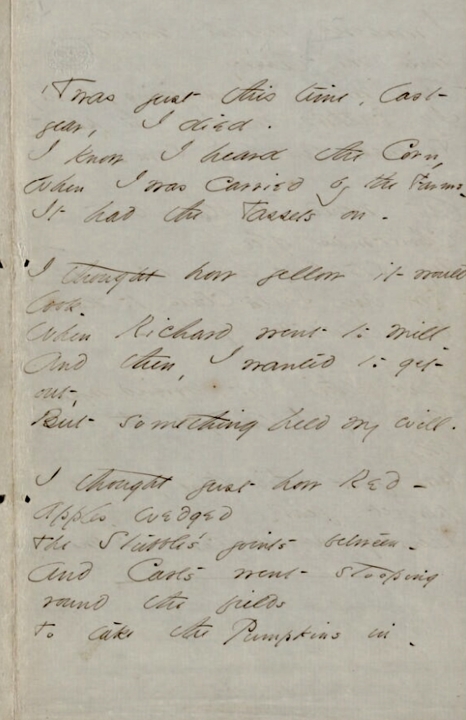 'Twas just this time, last
year, I died.
I know I heard the Corn,
When I was carried by the Farms -
It had the Tassels on -
I thought how yellow it would
look -
When Richard went to mill -
And then, I wanted to get
out,
But something held my will.
I thought just how Red -
Apples wedged
The Stubble's joints between -
And Carts went stooping
round the fields
To take the Pumpkins in -